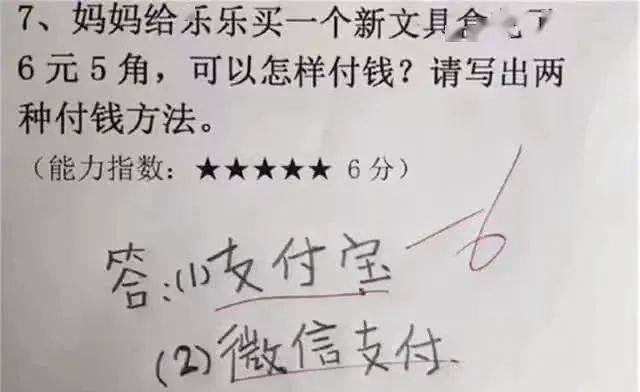 7、妈妈给乐乐买一个新文具盒花了
6元5角，可以怎样付钱？请写出两
种付钱方法。
（能力指数：★★★★★ 6分）
-6
答：(1)支付宝
(2)微信支付.